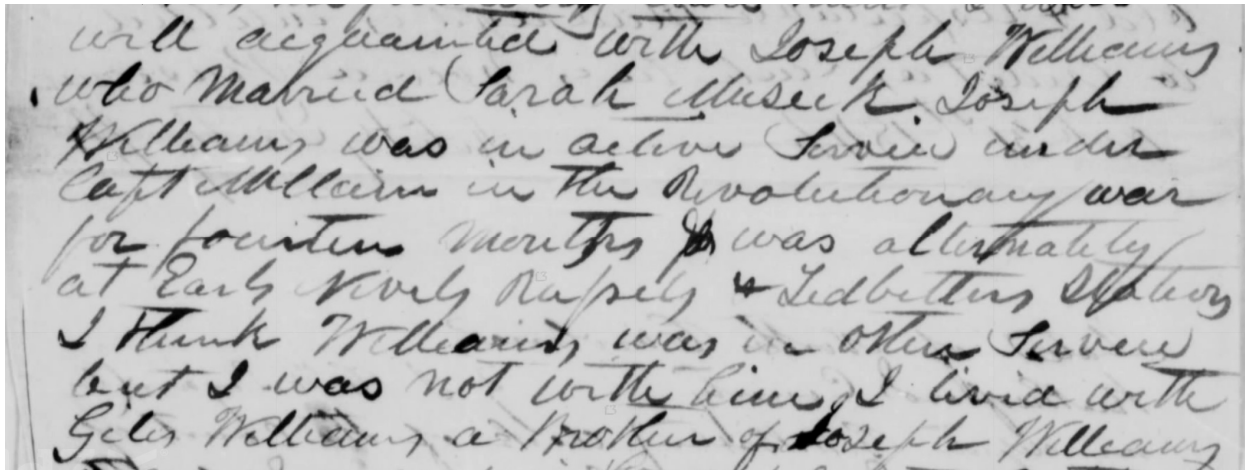 well acquainted with Joseph Williams
who Married Sarah Musick. Joseph
Williams was in active Service under
Capt McClain in the Revolutionary war
for fourteen months was alternately
at Earls Nivels & Ledbetters Stations
I think Williams was in other Service
but I was not with him, I lived with
Giles Williams a Brother of Joseph Williams